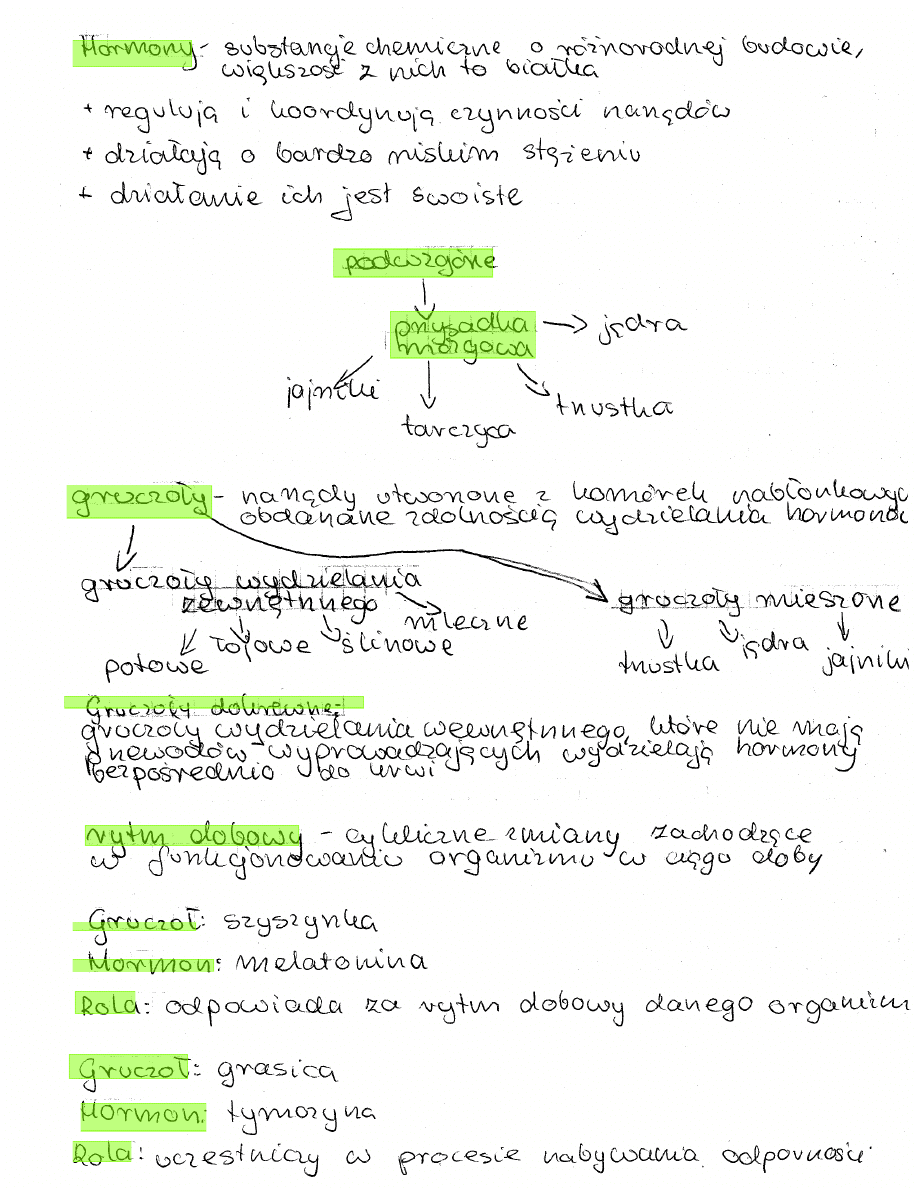 Hormony - substancje chemiczne o różnorodnej budowie,
większość z nich to białka
+ regulują i koordynują czynności narządów
+ działają o bardzo niskim stężeniu
+ działanie ich jest swoiste
podwzgórze
przysadka
mózgowa
jądra
jajniki
trzustka
tarczyca
gruczoły - narządy utworzone z komórek nabłonkowyc
obdarzone zdolnością wydzielania hormonó
gruczoły wydzielania
zewnętrznego
gruczoły mieszone
mleczne
łojowe
ślinowe
potowe
trzustka
jądra
jajniki
Gruczoły dokrewne:
gruczoły wydzielania wewnętrznego, które nie mają
przewodów wyprowadzających wydzielają hormony
bezpośrednio do krwi
rytm dobowy - cykliczne zmiany zachodzące
w funkcjonowaniu organizmu w ciągo doby
Gruczoł: szyszynka
Hormon: melatonina
Rola: odpowiada za rytm dobowy danego organizm
Gruczoł: grasica
Hormon: tymozyna
Rola: uczestniczy w procesie nabywania odporności